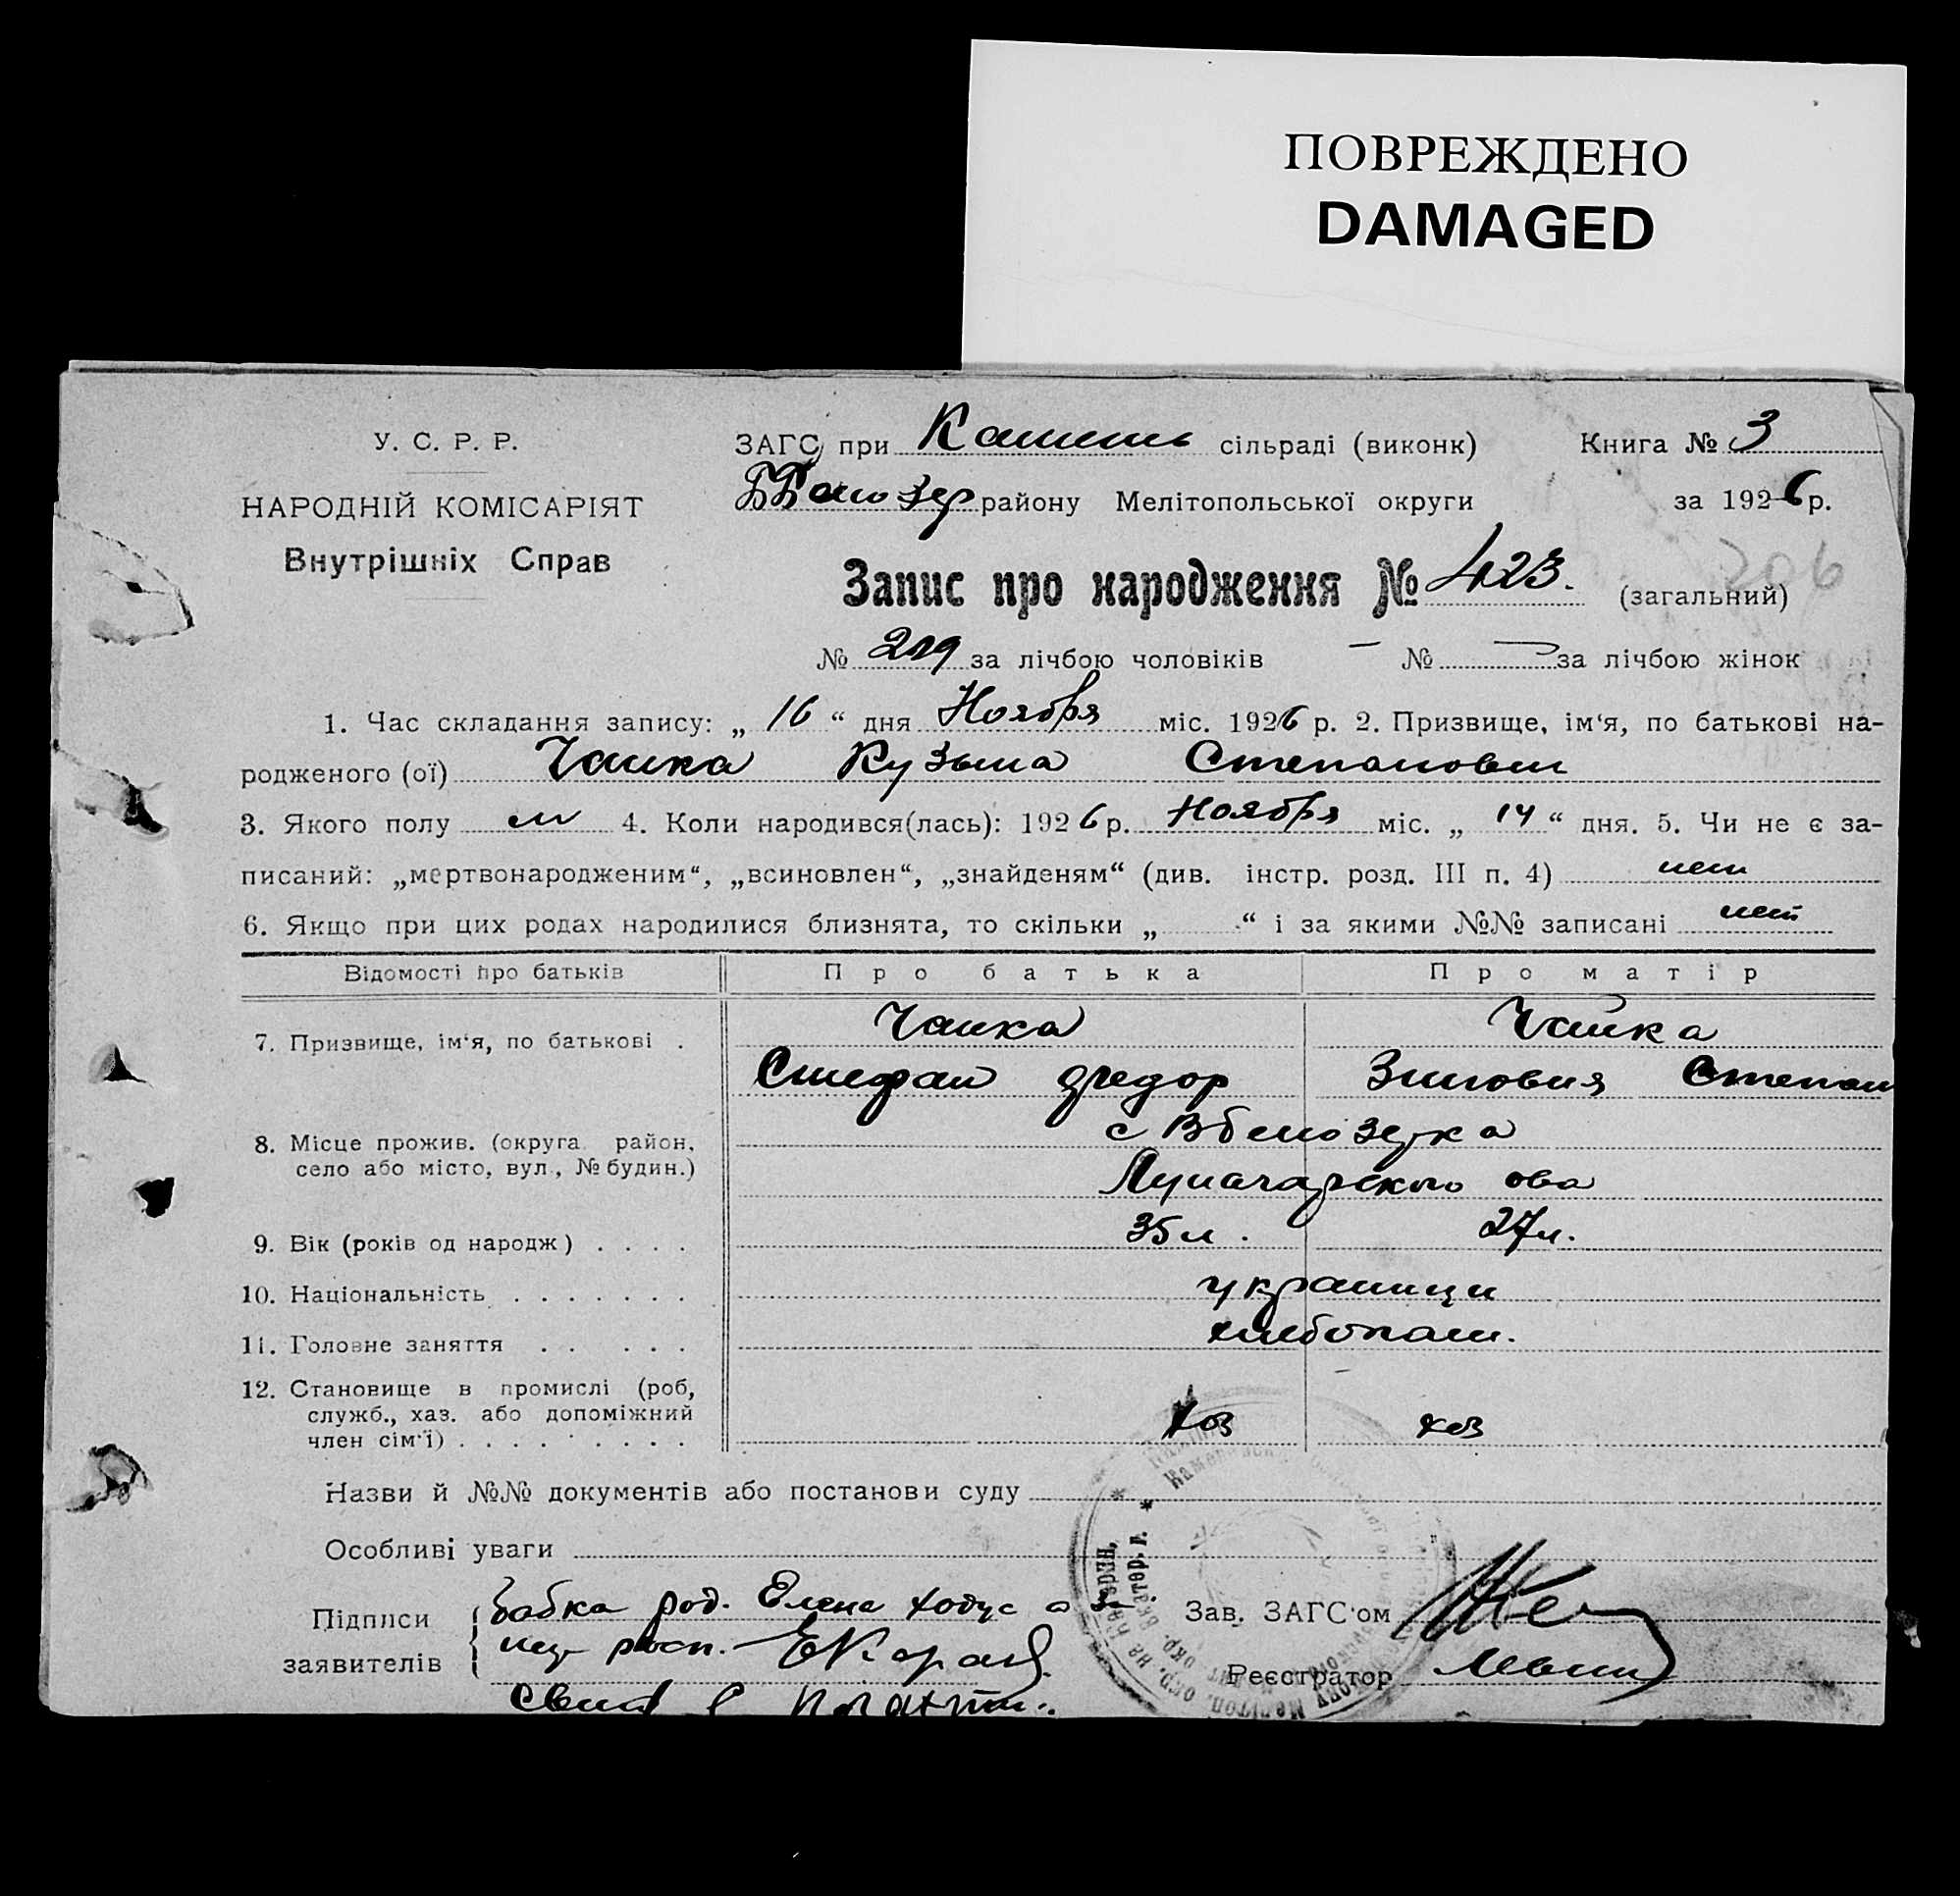 ПОВРЕЖДЕНО
DAMAGED
У. С. Р. Р.
НАРОДНІЙ КОМІСАРІЯТ
Внутрішніх Справ
ЗАГС при сільраді (виконк)
району Мелітопольської округи
Книга № 3
за 1926 р.
206
Запис про народження № 423. (загальний)
№ 219 за лічбою чоловіків — № за лічбою жінок
1. Час складання запису: „ 16 “ дня Ноября міс. 1926 р. 2. Призвище, ім‘я, по батькові на-
родженого (ої) Чайка Кузьма Степанович
3. Якого полу м 4. Коли народився(лась): 1926 р. Ноября міс. „ 14 “ дня. 5. Чи не є за-
писаний: „мертвонародженим“, „всиновлен“, „знайденям“ (див. інстр. розд. III п. 4) нет
6. Якщо при цих родах народилися близнята, то скільки „ “ і за якими №№ записані нет
Відомості про батьків Про батька Про матір
7. Призвище, ім‘я, по батькові . Чайка Чайка
Стефан Федор Зиновия Степан
8. Місце прожив. (округа район,
село або місто, вул., № будин.)
с Вбелозерка
Луначарского ова
9. Вік (років од народж) . . . . 35 л. 27 л.
10. Національність . . . . . . . украинци
11. Головне заняття . . . . . хлебопаш.
12. Становище в промислі (роб,
служб., хаз. або допоміжний
член сім‘ї) . . . . . . . . . хоз хоз
Назви й №№ документів або постанови суду
Особливі уваги
Підписи
заявителів
бабка род. Елена Ходус а
нег расп.
Зав. ЗАГС‘ом
Реєстратор